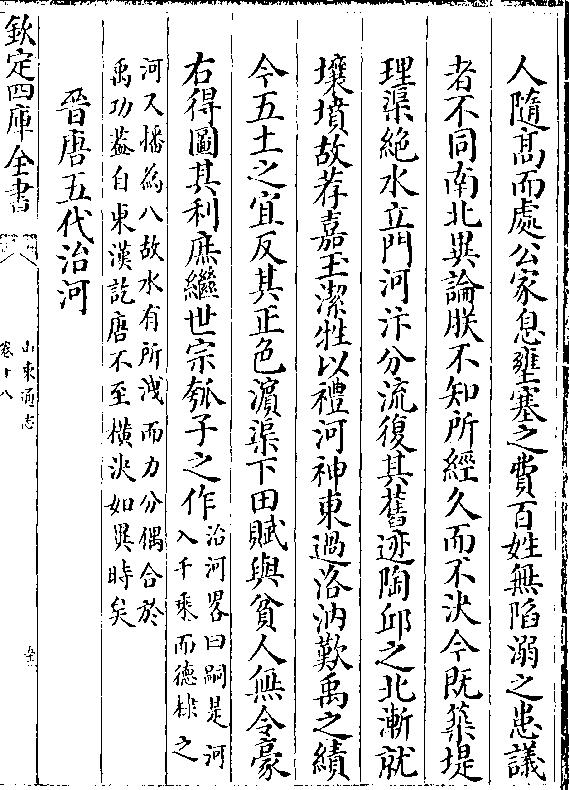 人隨髙而處公家息壅塞之費百姓無陷溺之患議
者不同南北異論朕不知所經久而不決今既築堤
理渠絶水立門河汴分流復其舊迹陶邱之北漸就
壤墳故荐嘉玉潔牲以禮河神東過洛汭歎禹之績
今五土之宜反其正色濵渠下田賦與貧人無令豪
右得圖其利庶繼世宗瓠子之作治河畧曰嗣是河
入千乘而德棣之
河又播為八故水有所洩而力分偶合於
禹功葢自東漢訖唐不至橫決如異時矣
晉唐五代治河
欽定四庫全書
山東通志
卷十八